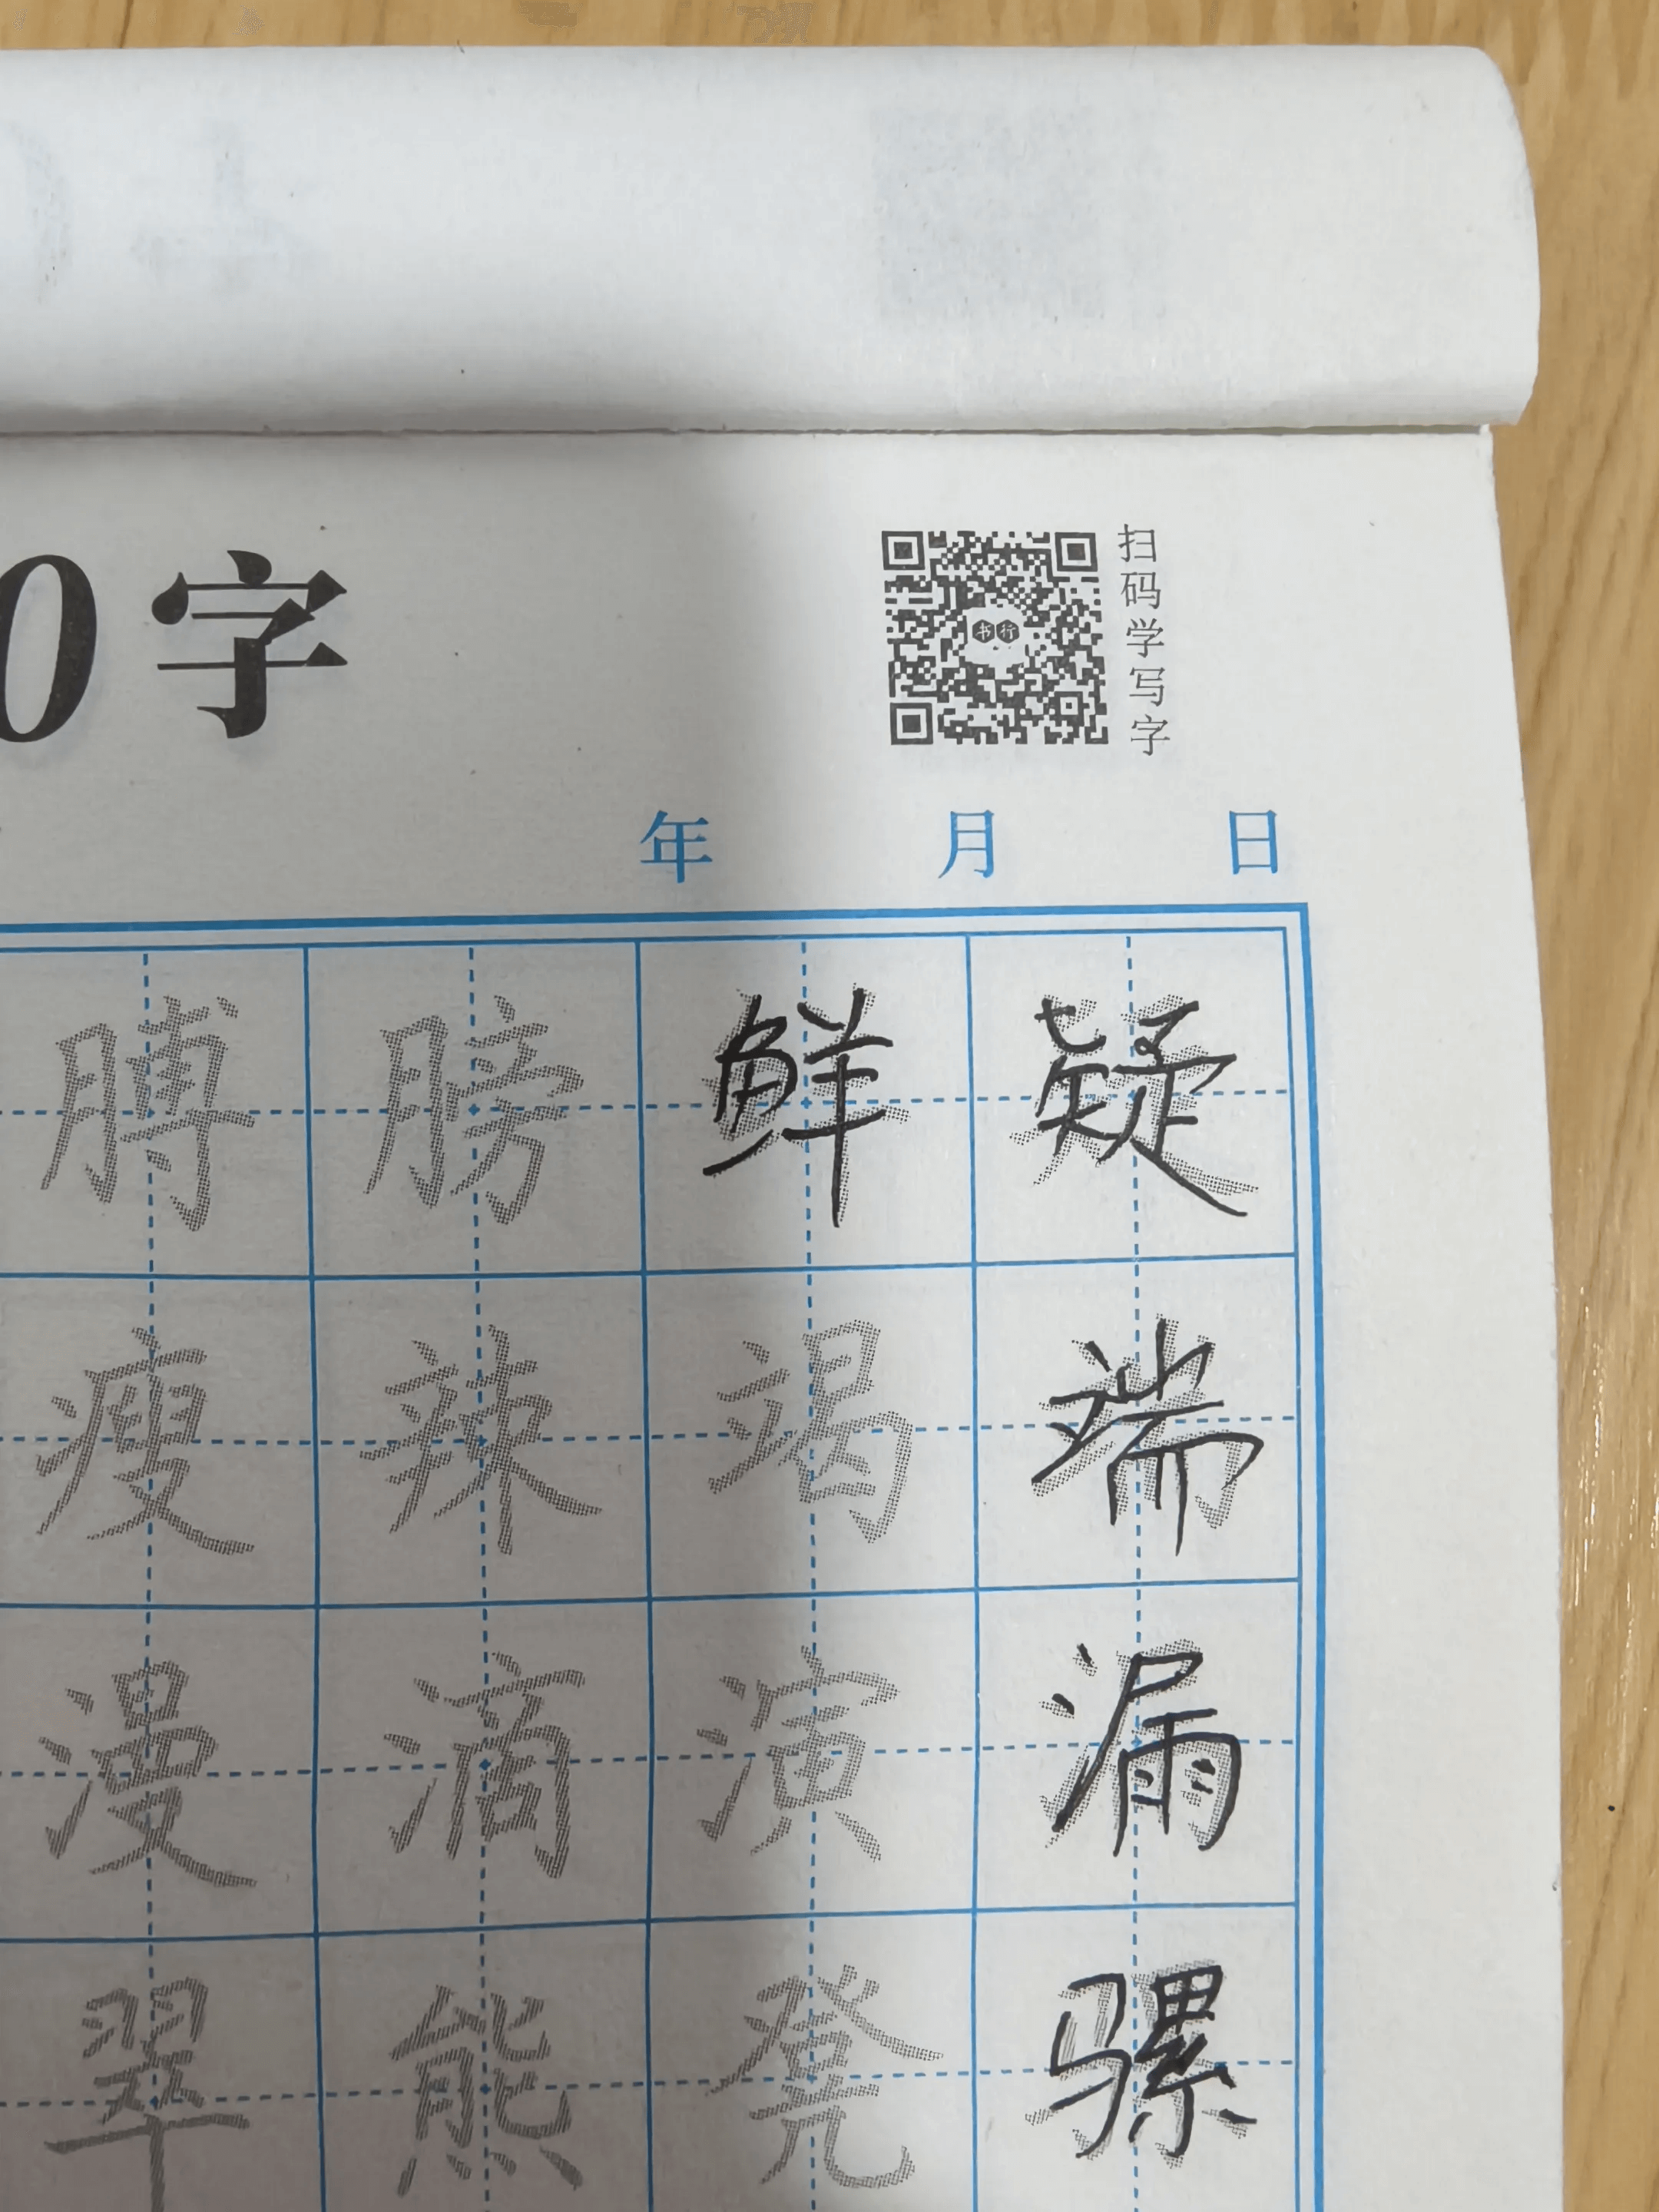 0字
扫码学写字
书行
年 月 日
膊 膀 鲜 疑
瘦 辣 竭 端
漫 滴 演 漏
翠 熊 凳 骡